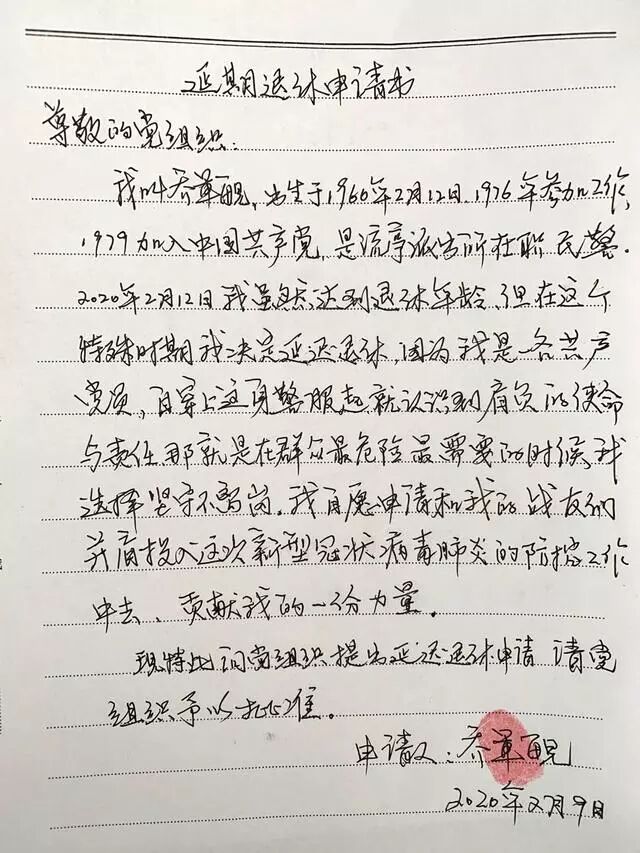 延期退休申请书
尊敬的党组织:
我叫乔军，出生于1960年2月12日，1976年参加工作，
1979加入中国共产党，是流亭派出所在职民警.
2020年2月12日我虽然达到退休年龄，但在这个
特殊时期我决定延迟退休，因为我是一名共产
党员，自穿上这身警服起就认识到肩负的使命
与责任，那就是在群众最危险最需要的时候，我
选择坚守不离岗。我自愿申请和我的战友们
并肩投入这次新型冠状病毒肺炎的防控工作
中去、贡献我的一份力量。
现特此向党组织提出延迟退休申请 请党
组织予以批准。
申请人：乔军
2020年2月9日